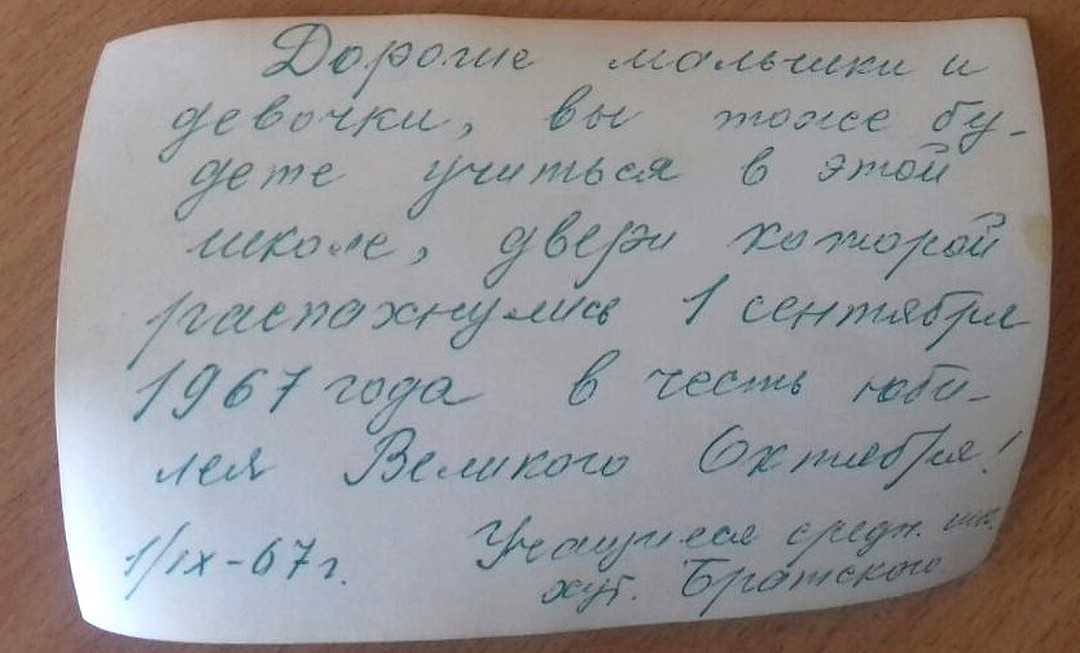 Дорогие мальчики и
девочки, вы тоже бу-
дете учиться в этой
школе, двери которой
распахнулись 1 сентября
1967 года в честь юби-
лея Великого Октября!
1/IX-67 г. Учащиеся средн. шк.
хут. Братского